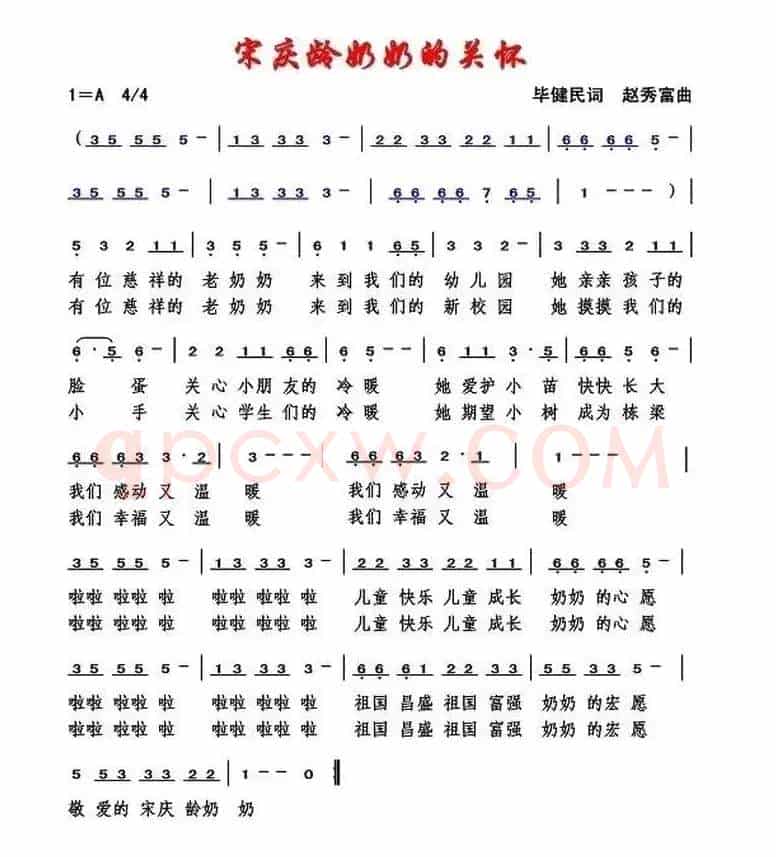 宋庆龄奶奶的关怀
1=A 4/4 毕健民词 赵秀富曲
( 35 55 5 - | 13 33 3 - | 22 33 22 11 | 66 66 5 - |
35 55 5 - | 13 33 3 - | 66 66 7 65 | 1 - - - ) |
5 3 2 11 | 3 5 5 - | 6 1 1 65 | 3 3 2 - | 3 33 5 55 |
有位慈祥的 老奶奶 来到我们的 幼儿园 她亲亲孩子的
有位慈祥的 老奶奶 来到我们的 新校园 她摸摸我们的
6 · 5 6 - | 2 2 11 66 | 6 5 - - | 6 11 2 11 | 3 · 5 5 - |
脸 蛋 关心小朋友的 冷暖 她爱护小苗 快快长大
小 手 关心学生们的 冷暖 她期望小树 成为栋梁
qpcxw.COM
66 63 3 · 2 | 3 - - - | 66 63 2 · 1 | 1 - - - |
我们 感动 又 温 暖 我们 感动 又 温 暖
我们 幸福 又 温 暖 我们 幸福 又 温 暖
35 55 5 - | 13 33 3 - | 22 33 22 11 | 66 66 5 - |
啦啦 啦啦 啦 啦啦 啦啦 啦 儿童 快乐 儿童 成长 奶奶 的心 愿
啦啦 啦啦 啦 啦啦 啦啦 啦 儿童 快乐 儿童 成长 奶奶 的心 愿
35 55 5 - | 13 33 3 - | 66 61 22 11 | 35 33 2 - |
啦啦 啦啦 啦 啦啦 啦啦 啦 祖国 昌盛 祖国 富强 奶奶 的宏 愿
啦啦 啦啦 啦 啦啦 啦啦 啦 祖国 昌盛 祖国 富强 奶奶 的宏 愿
5 53 33 22 | 1 - - 0 ‖
敬 爱的 宋庆 龄奶 奶